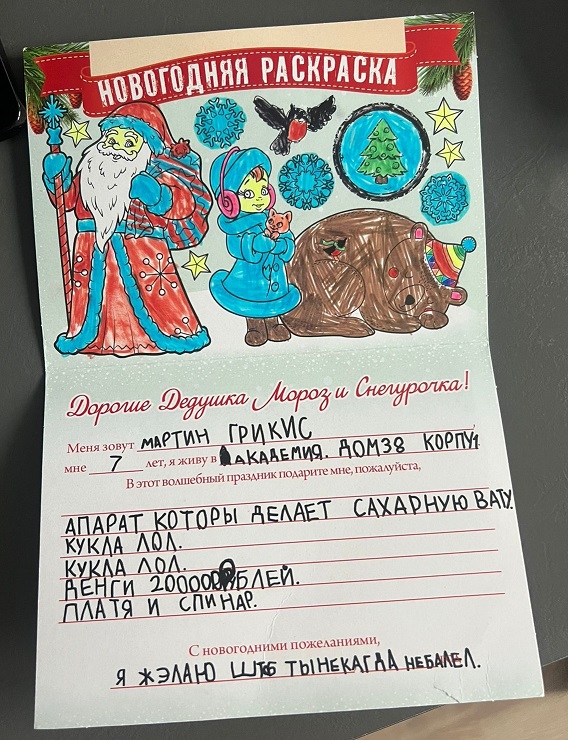 НОВОГОДНЯЯ РАСКРАСКА
Дорогие Дедушка Мороз и Снегурочка!
Меня зовут МАРТИН ГРИКИС
мне 7 лет, я живу в АКАДЕМИЯ. ДОМ38 КОРПУ1
В этот волшебный праздник подарите мне, пожалуйста,
АПАРАТ КОТОРЫ ДЕЛАЕТ САХАРНУЮ ВАТУ.
КУКЛА ЛОЛ.
КУКЛА ЛОЛ.
ДЕНГИ 200000 БЛЕЙ.
ПЛАТЯ И СПИНАР.
С новогодними пожеланиями,
Я ЖЭЛАЮ ШТБ ТЫНЕКАГДА НЕБАЛЕЛ.